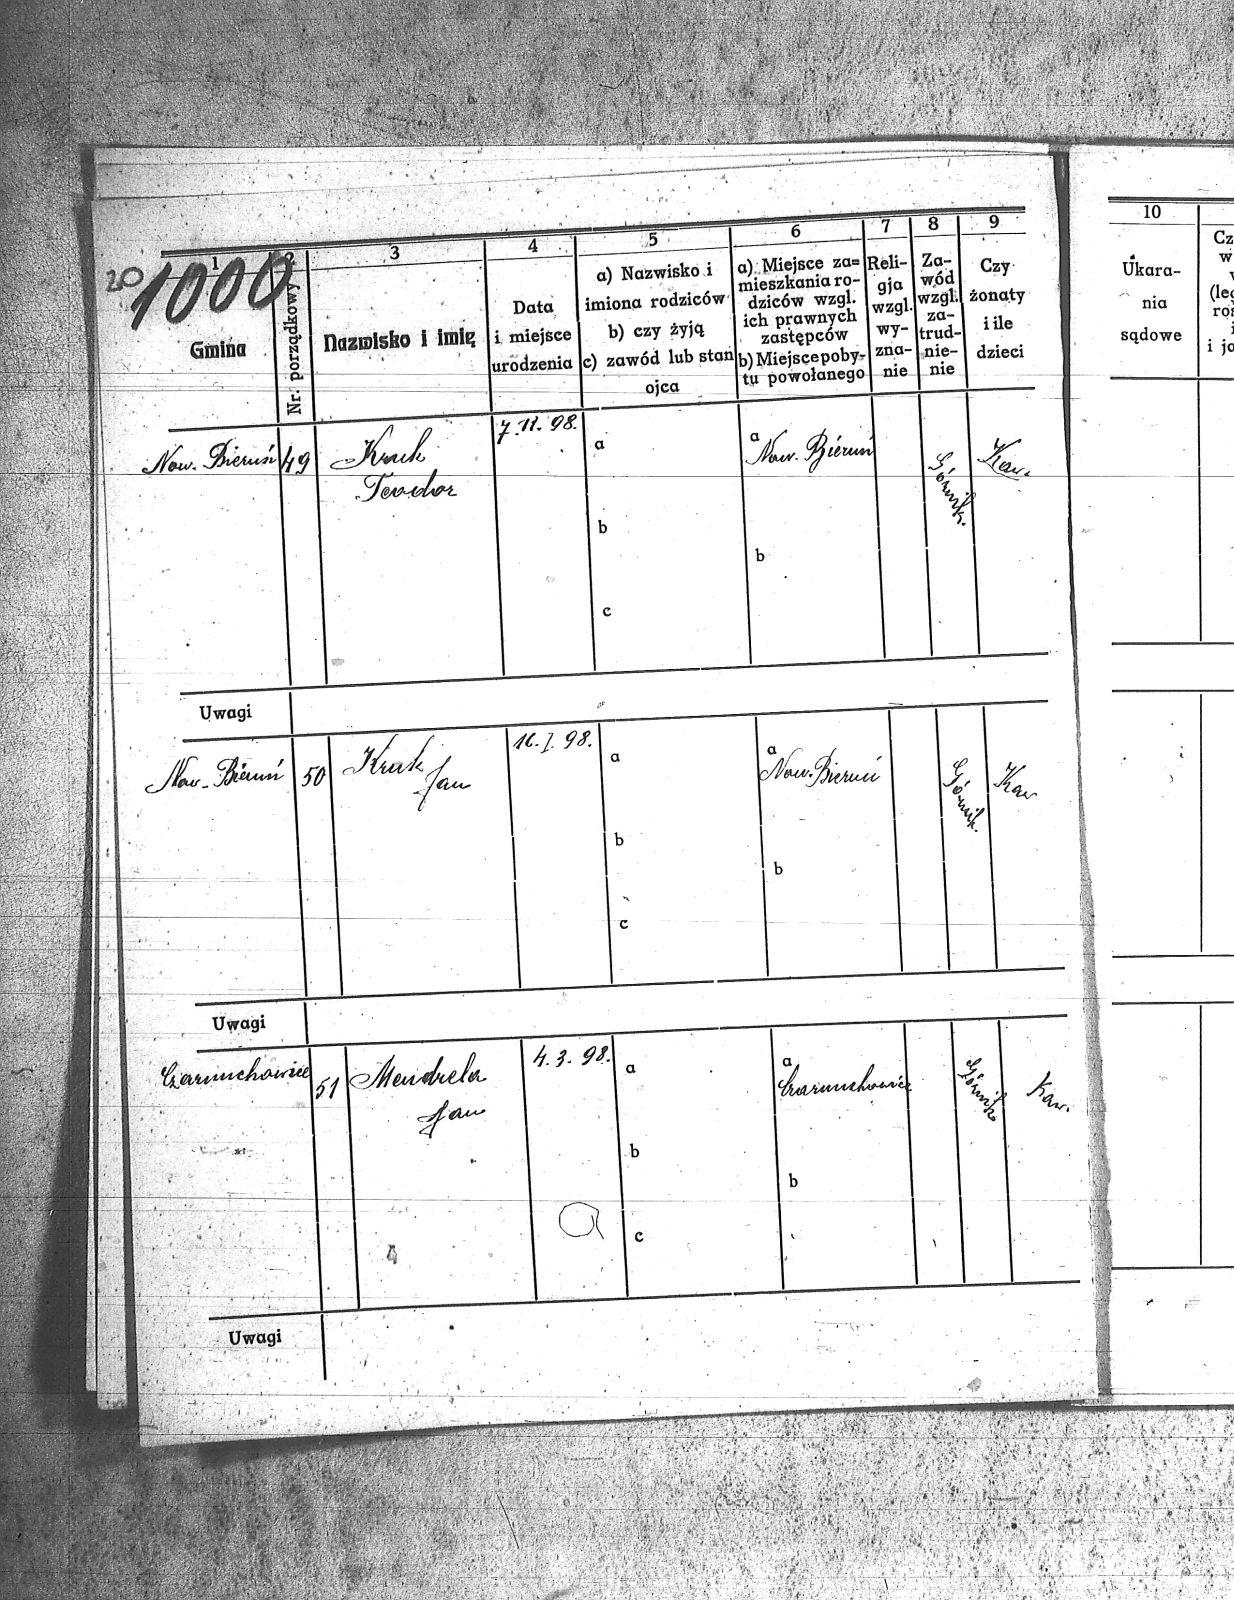 20
1000
1
Gmina
2
Nr. porządkowy
3
Nazwisko i imię
4
Data
i miejsce
urodzenia
5
a) Nazwisko i
imiona rodziców
b) czy żyją
c) zawód lub stan
ojca
6
a) Miejsce za=
mieszkania ro-
dziców wzgl.
ich prawnych
zastępców
b) Miejsce poby-
tu powołanego
7
Reli-
gja
wzgl.
wy-
zna-
nie
8
Za-
wód
wzgl.
za-
trud-
nie-
nie
9
Czy
żonaty
i ile
dzieci
10
Ukara-
nia
sądowe
Now. Bieruń
49
Kruk
Teodor
7. 11. 98.
a
b
c
a
Now. Bieruń
b
Górnik.
Kaw.
Uwagi
Now. Bieruń
50
Kruk
Jan
16. I. 98.
a
b
c
a
Now. Bieruń
b
Górnik.
Kaw
Uwagi
Czarnuchowice
51
Mendrela
Jan
4. 3. 98.
a
b
c
a
Czarnuchowice
b
Górnik
Kaw.
Uwagi